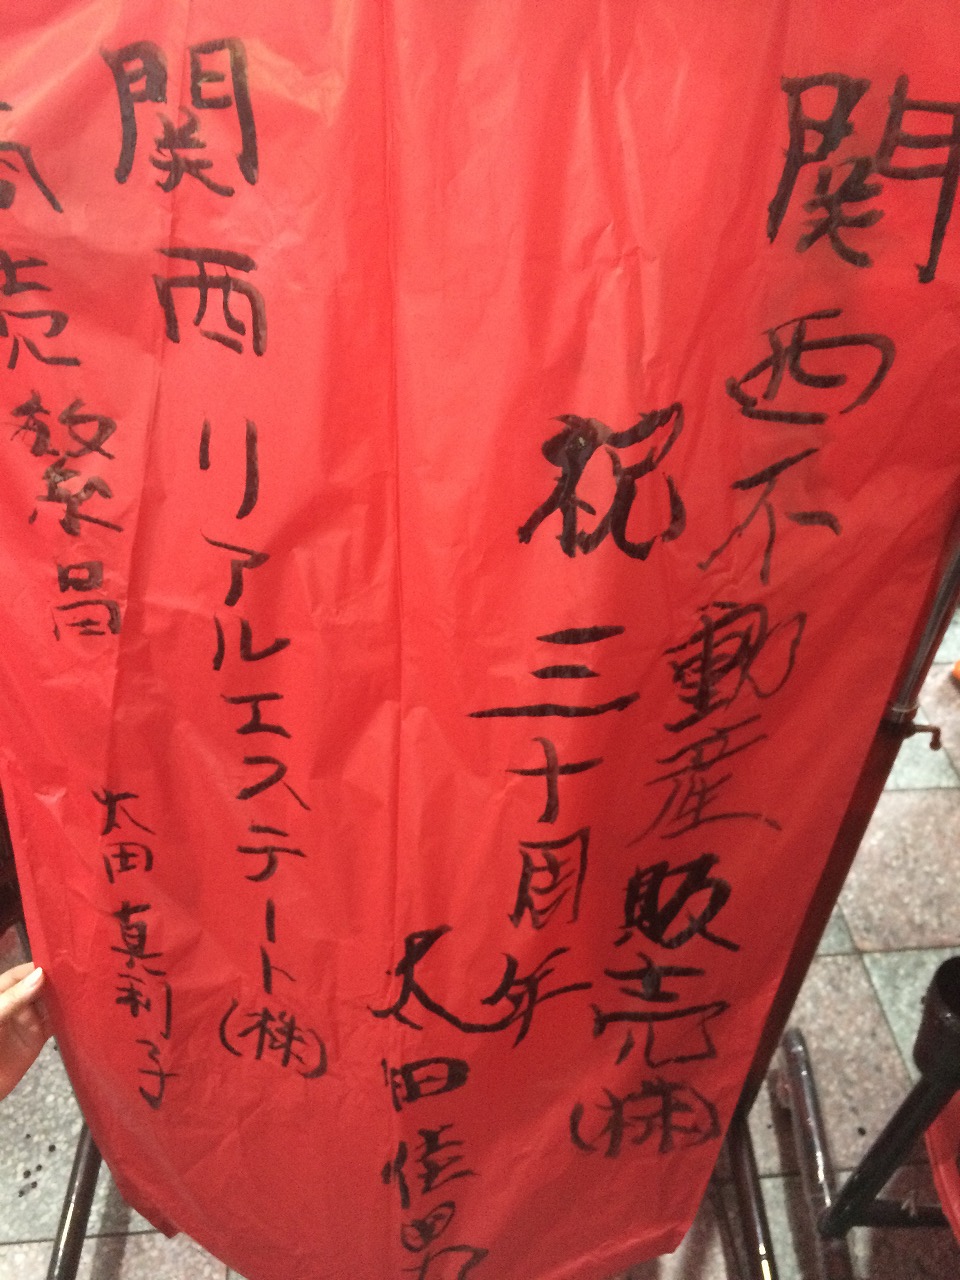 関西不動産販売(株)
祝三十周年
太田佳男
関西リアルエステート(株)
商売繁昌
太田真莉子